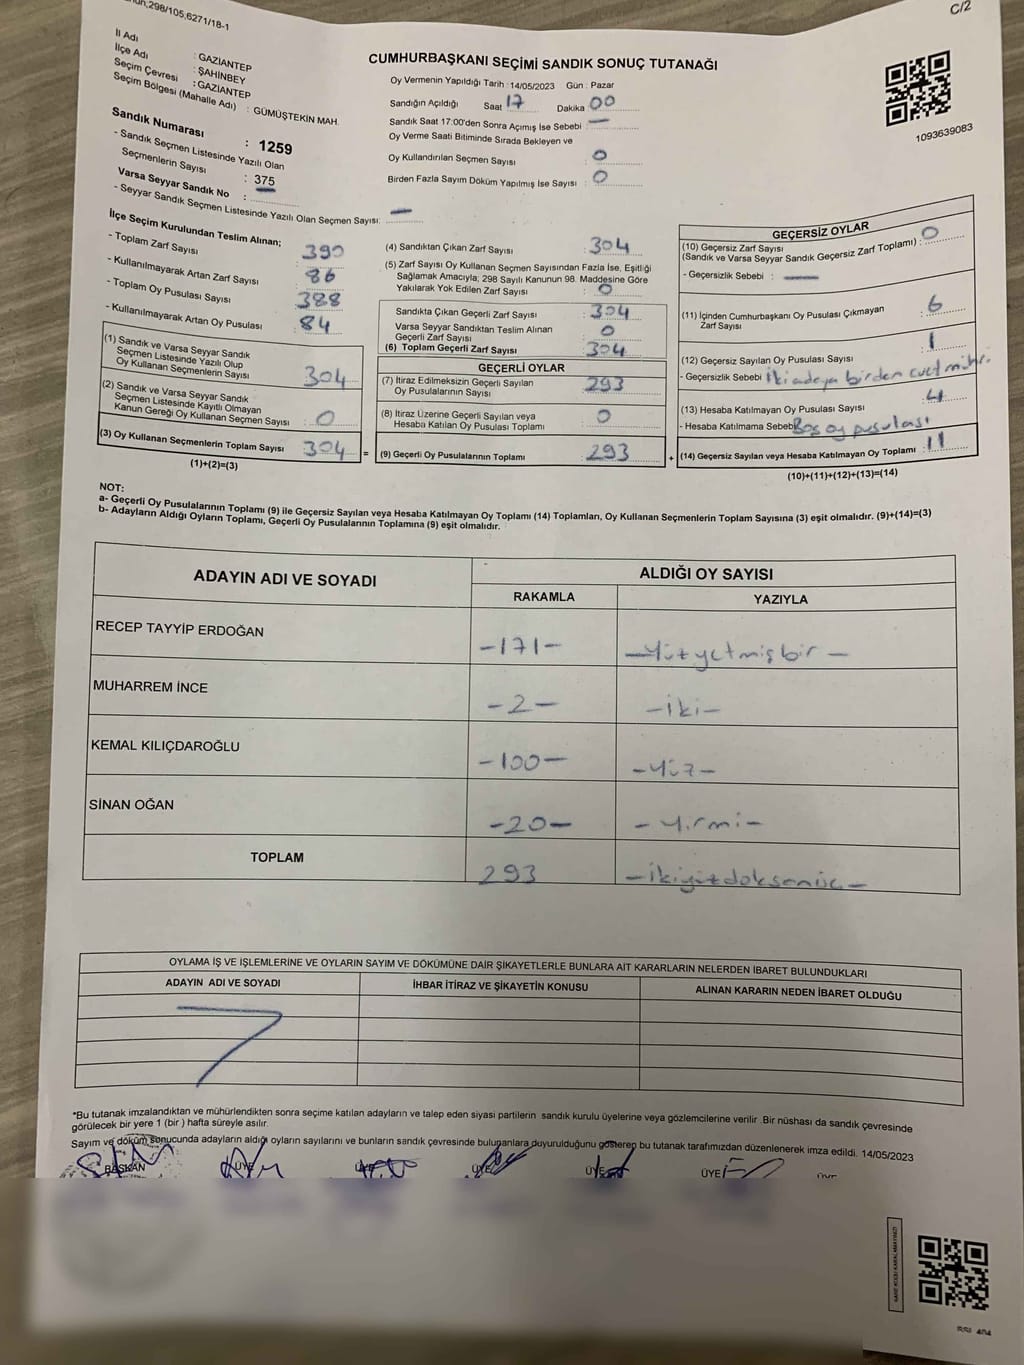 298/105,6271/18-1
C/2
İl Adı : GAZİANTEP
İlçe Adı : ŞAHİNBEY
Seçim Çevresi : GAZİANTEP
Seçim Bölgesi (Mahalle Adı) : GÜMÜŞTEKİN MAH.
Sandık Numarası : 1259
- Sandık Seçmen Listesinde Yazılı Olan
Seçmenlerin Sayısı : 375
Varsa Seyyar Sandık No : —
- Seyyar Sandık Seçmen Listesinde Yazılı Olan Seçmen Sayısı: —
CUMHURBAŞKANI SEÇİMİ SANDIK SONUÇ TUTANAĞI
Oy Vermenin Yapıldığı Tarih : 14/05/2023 Gün : Pazar
Sandığın Açıldığı Saat 17 Dakika 00
Sandık Saat 17:00'den Sonra Açımış İse Sebebi : —
Oy Verme Saati Bitiminde Sırada Bekleyen ve
Oy Kullandırılan Seçmen Sayısı : 0
Birden Fazla Sayım Döküm Yapılmış İse Sayısı : 0
1093639083
İlçe Seçim Kurulundan Teslim Alınan;
- Toplam Zarf Sayısı : 390
- Kullanılmayarak Artan Zarf Sayısı : 86
- Toplam Oy Pusulası Sayısı : 388
- Kullanılmayarak Artan Oy Pusulası : 84
(1) Sandık ve Varsa Seyyar Sandık
Seçmen Listesinde Yazılı Olup
Oy Kullanan Seçmenlerin Sayısı : 304
(2) Sandık ve Varsa Seyyar Sandık
Seçmen Listesinde Kayıtlı Olmayan
Kanun Gereği Oy Kullanan Seçmen Sayısı : 0
(3) Oy Kullanan Seçmenlerin Toplam Sayısı : 304
(1)+(2)=(3)
(4) Sandıktan Çıkan Zarf Sayısı : 304
(5) Zarf Sayısı Oy Kullanan Seçmen Sayısından Fazla İse, Eşitliği
Sağlamak Amacıyla; 298 Sayılı Kanunun 98. Maddesine Göre
Yakılarak Yok Edilen Zarf Sayısı : 0
Sandıkta Çıkan Geçerli Zarf Sayısı : 304
Varsa Seyyar Sandıktan Teslim Alınan
Geçerli Zarf Sayısı : 0
(6) Toplam Geçerli Zarf Sayısı : 304
GEÇERLİ OYLAR
(7) İtiraz Edilmeksizin Geçerli Sayılan
Oy Pusulalarının Sayısı : 293
(8) İtiraz Üzerine Geçerli Sayılan veya
Hesaba Katılan Oy Pusulası Toplamı : 0
= (9) Geçerli Oy Pusulalarının Toplamı : 293
GEÇERSİZ OYLAR
(10) Geçersiz Zarf Sayısı
(Sandık ve Varsa Seyyar Sandık Geçersiz Zarf Toplamı) : 0
- Geçersizlik Sebebi : —
(11) İçinden Cumhurbaşkanı Oy Pusulası Çıkmayan
Zarf Sayısı : 6
(12) Geçersiz Sayılan Oy Pusulası Sayısı : 1
- Geçersizlik Sebebi : İki adaya birden evet mührü.
(13) Hesaba Katılmayan Oy Pusulası Sayısı : 4
- Hesaba Katılmama Sebebi : Boş oy pusulası
+ (14) Geçersiz Sayılan veya Hesaba Katılmayan Oy Toplamı : 11
(10)+(11)+(12)+(13)=(14)
NOT:
a- Geçerli Oy Pusulalarının Toplamı (9) ile Geçersiz Sayılan veya Hesaba Katılmayan Oy Toplamı (14) Toplamları, Oy Kullanan Seçmenlerin Toplam Sayısına (3) eşit olmalıdır. (9)+(14)=(3)
b- Adayların Aldığı Oyların Toplamı, Geçerli Oy Pusulalarının Toplamına (9) eşit olmalıdır.
ADAYIN ADI VE SOYADI ALDIĞI OY SAYISI
RAKAMLA YAZIYLA
RECEP TAYYİP ERDOĞAN -171- -Yüzyetmişbir-
MUHARREM İNCE -2- -İki-
KEMAL KILIÇDAROĞLU -100- -Yüz-
SİNAN OĞAN -20- -Yirmi-
TOPLAM 293 -İkiyüzdoksanüç-
OYLAMA İŞ VE İŞLEMLERİNE VE OYLARIN SAYIM VE DÖKÜMÜNE DAİR ŞİKAYETLERLE BUNLARA AİT KARARLARIN NELERDEN İBARET BULUNDUKLARI
ADAYIN ADI VE SOYADI İHBAR İTİRAZ VE ŞİKAYETİN KONUSU ALINAN KARARIN NEDEN İBARET OLDUĞU
*Bu tutanak imzalandıktan ve mühürlendikten sonra seçime katılan adayların ve talep eden siyasi partilerin sandık kurulu üyelerine veya gözlemcilerine verilir. Bir nüshası da sandık çevresinde
görülecek bir yere 1 (bir) hafta süreyle asılır.
Sayım ve döküm sonucunda adayların aldığı oyların sayılarını ve bunların sandık çevresinde bulunanlara duyurulduğunu gösteren bu tutanak tarafımızdan düzenlenerek imza edildi. 14/05/2023
BAŞKAN ÜYE ÜYE ÜYE ÜYE ÜYE ÜYE